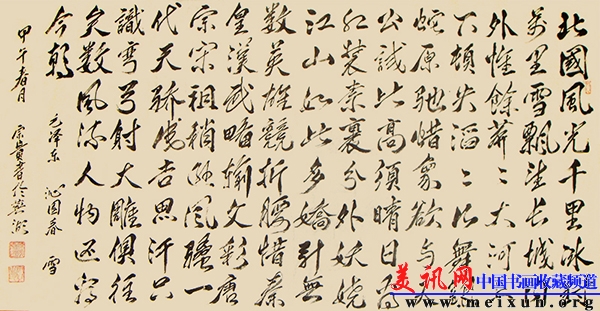 北國風光千里冰封
萬里雪飄望長城內
外惟餘莽〻大河上
下頓失滔〻山舞銀
蛇原馳蜡象欲與天
公試比高須晴日看
红裝素裹分外妖嬈
江山如此多嬌引無
數英雄競折腰惜秦
皇漢武略输文彩唐
宗宋祖稍遜風騷一
代天驕成吉思汗只
識彎弓射大雕俱往
矣數風流人物还看
今朝
毛泽东 沁园春 雪
甲午春月 宗貴書於
美讯网 中国书画收藏频道
www.meixun.org